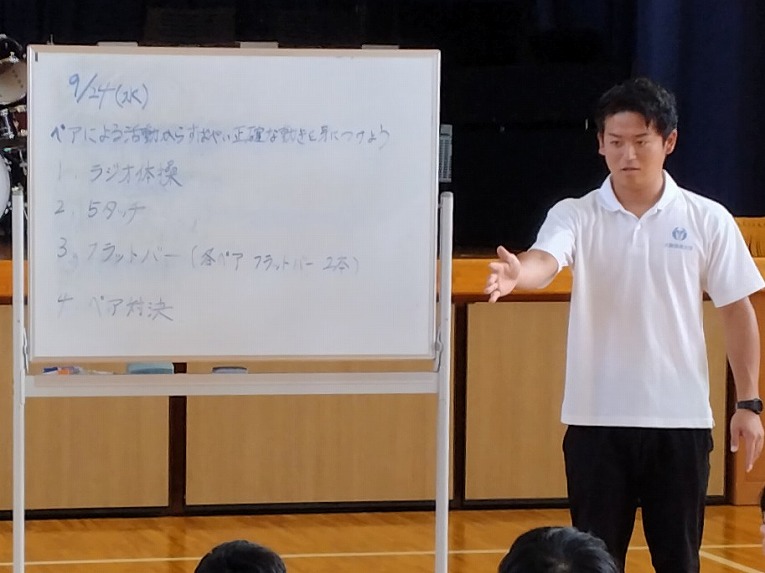 9/24(水)
ペアによる活動からすばやい正確な動きを身につけよう
1. ラジオ体操
2. 5タッチ
3. フラットバー (各ペア フラットバー 2本)
4. ペア対決